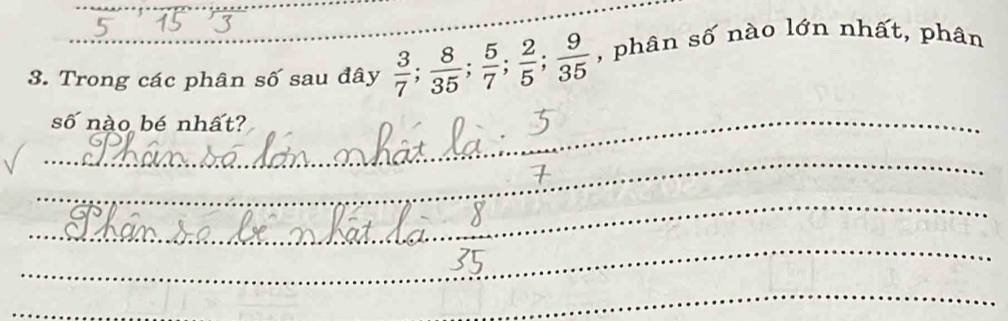 5 ; 15 ; 3
3. Trong các phân số sau đây 3/7; 8/35; 5/7; 2/5; 9/35, phân số nào lớn nhất, phân
số nào bé nhất?
√ Phân số lớn nhất là: 5/7
Phân số bé nhất là 8/35